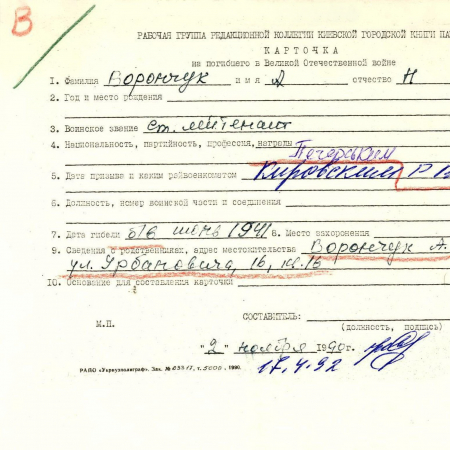 В
РАБОЧАЯ ГРУППА РЕДАКЦИОННОЙ КОЛЛЕГИИ КИЕВСКОЙ ГОРОДСКОЙ КНИГИ ПА
КАРТОЧКА
на погибшего в Великой Отечественной войне
1. Фамилия Ворончук имя А отчество Н
2. Год и место рождения
3. Воинское звание ст. лейтенант
4. Национальность, партийность, профессия, награды
Печерським
5. Дата призыва и каким райвоенкоматом Кировским Р В
6. Должность, номер воинской части и соединения
7. Дата гибели б/в 1941 8. Место захоронения
9. Сведения о родственниках, адрес местожительства Ворончук А.
ул. Урбановича, 16, кв. 16
10. Основание для составления карточки
СОСТАВИТЕЛЬ:
(должность, подпись)
М.П.
"2" ноября 1990г.
17.4.92
РАПО «Укрвузполиграф». Зак. № т. 5000, 1990.